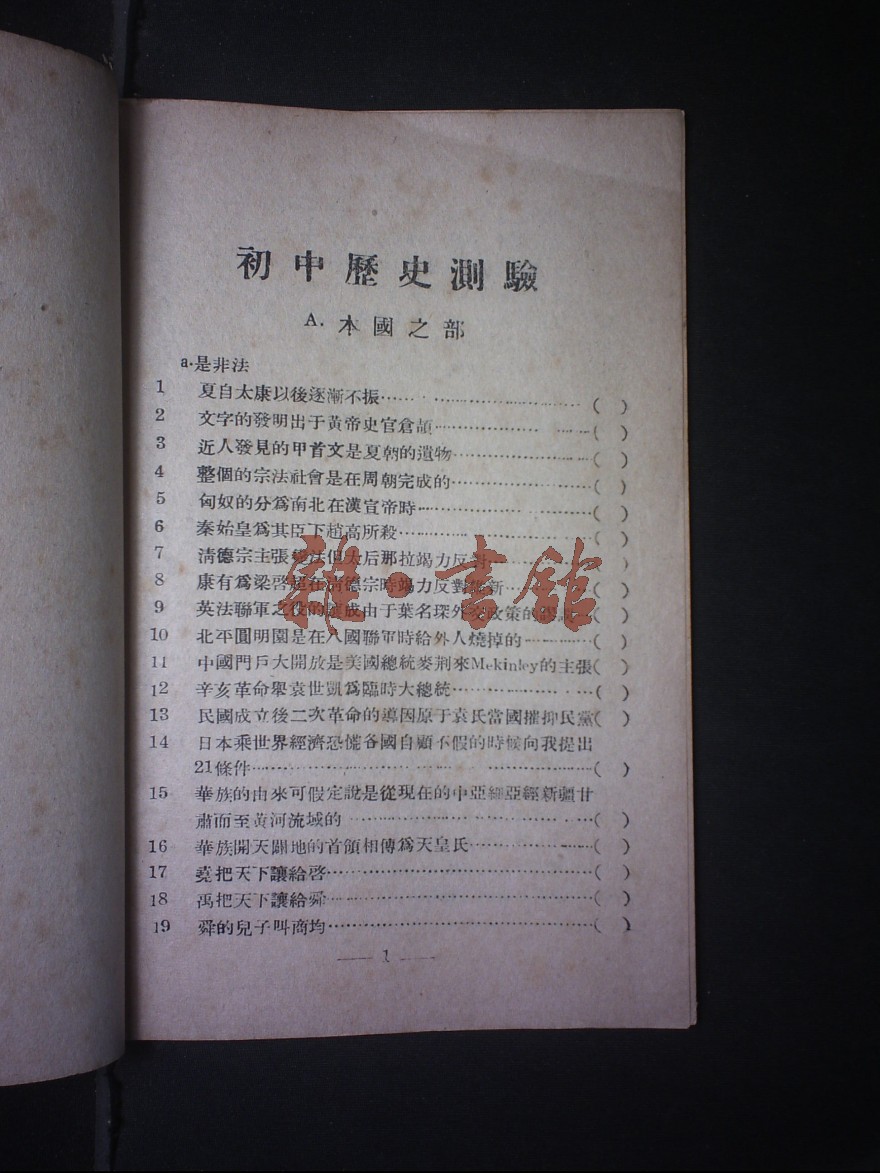 初中歷史測驗
A. 本國之部
a.是非法
1 夏自太康以後逐漸不振……………………( )
2 文字的發明出于黃帝史官倉頡……………………( )
3 近人發見的甲首文是夏朝的遺物……………………( )
4 整個的宗法社會是在周朝完成的……………………( )
5 匈奴的分爲南北在漢宣帝時……………………( )
6 秦始皇爲其臣下趙高所殺……………………( )
7 淸德宗主張變法但太后那拉竭力反對……( )
8 康有爲梁啓超在淸德宗時竭力反對維新……( )
9 英法聯軍之役的釀成由于葉名琛外交政策的謬誤…( )
10 北平圓明園是在八國聯軍時給外人燒掉的…………( )
11 中國門戶大開放是美國總統麥荆來Mckinley的主張( )
12 辛亥革命舉袁世凱爲臨時大總統……………………( )
13 民國成立後二次革命的導因原于袁氏當國摧抑民黨( )
14 日本乘世界經濟恐慌各國自顧不假的時候向我提出
21條件……………………( )
15 華族的由來可假定說是從現在的中亞細亞經新疆甘
肅而至黃河流域的……………………( )
16 華族開天闢地的首領相傳爲天皇氏……………………( )
17 堯把天下讓給啓……………………( )
18 禹把天下讓給舜……………………( )
19 舜的兒子叫商均……………………( )
— 1 —
雜·書館